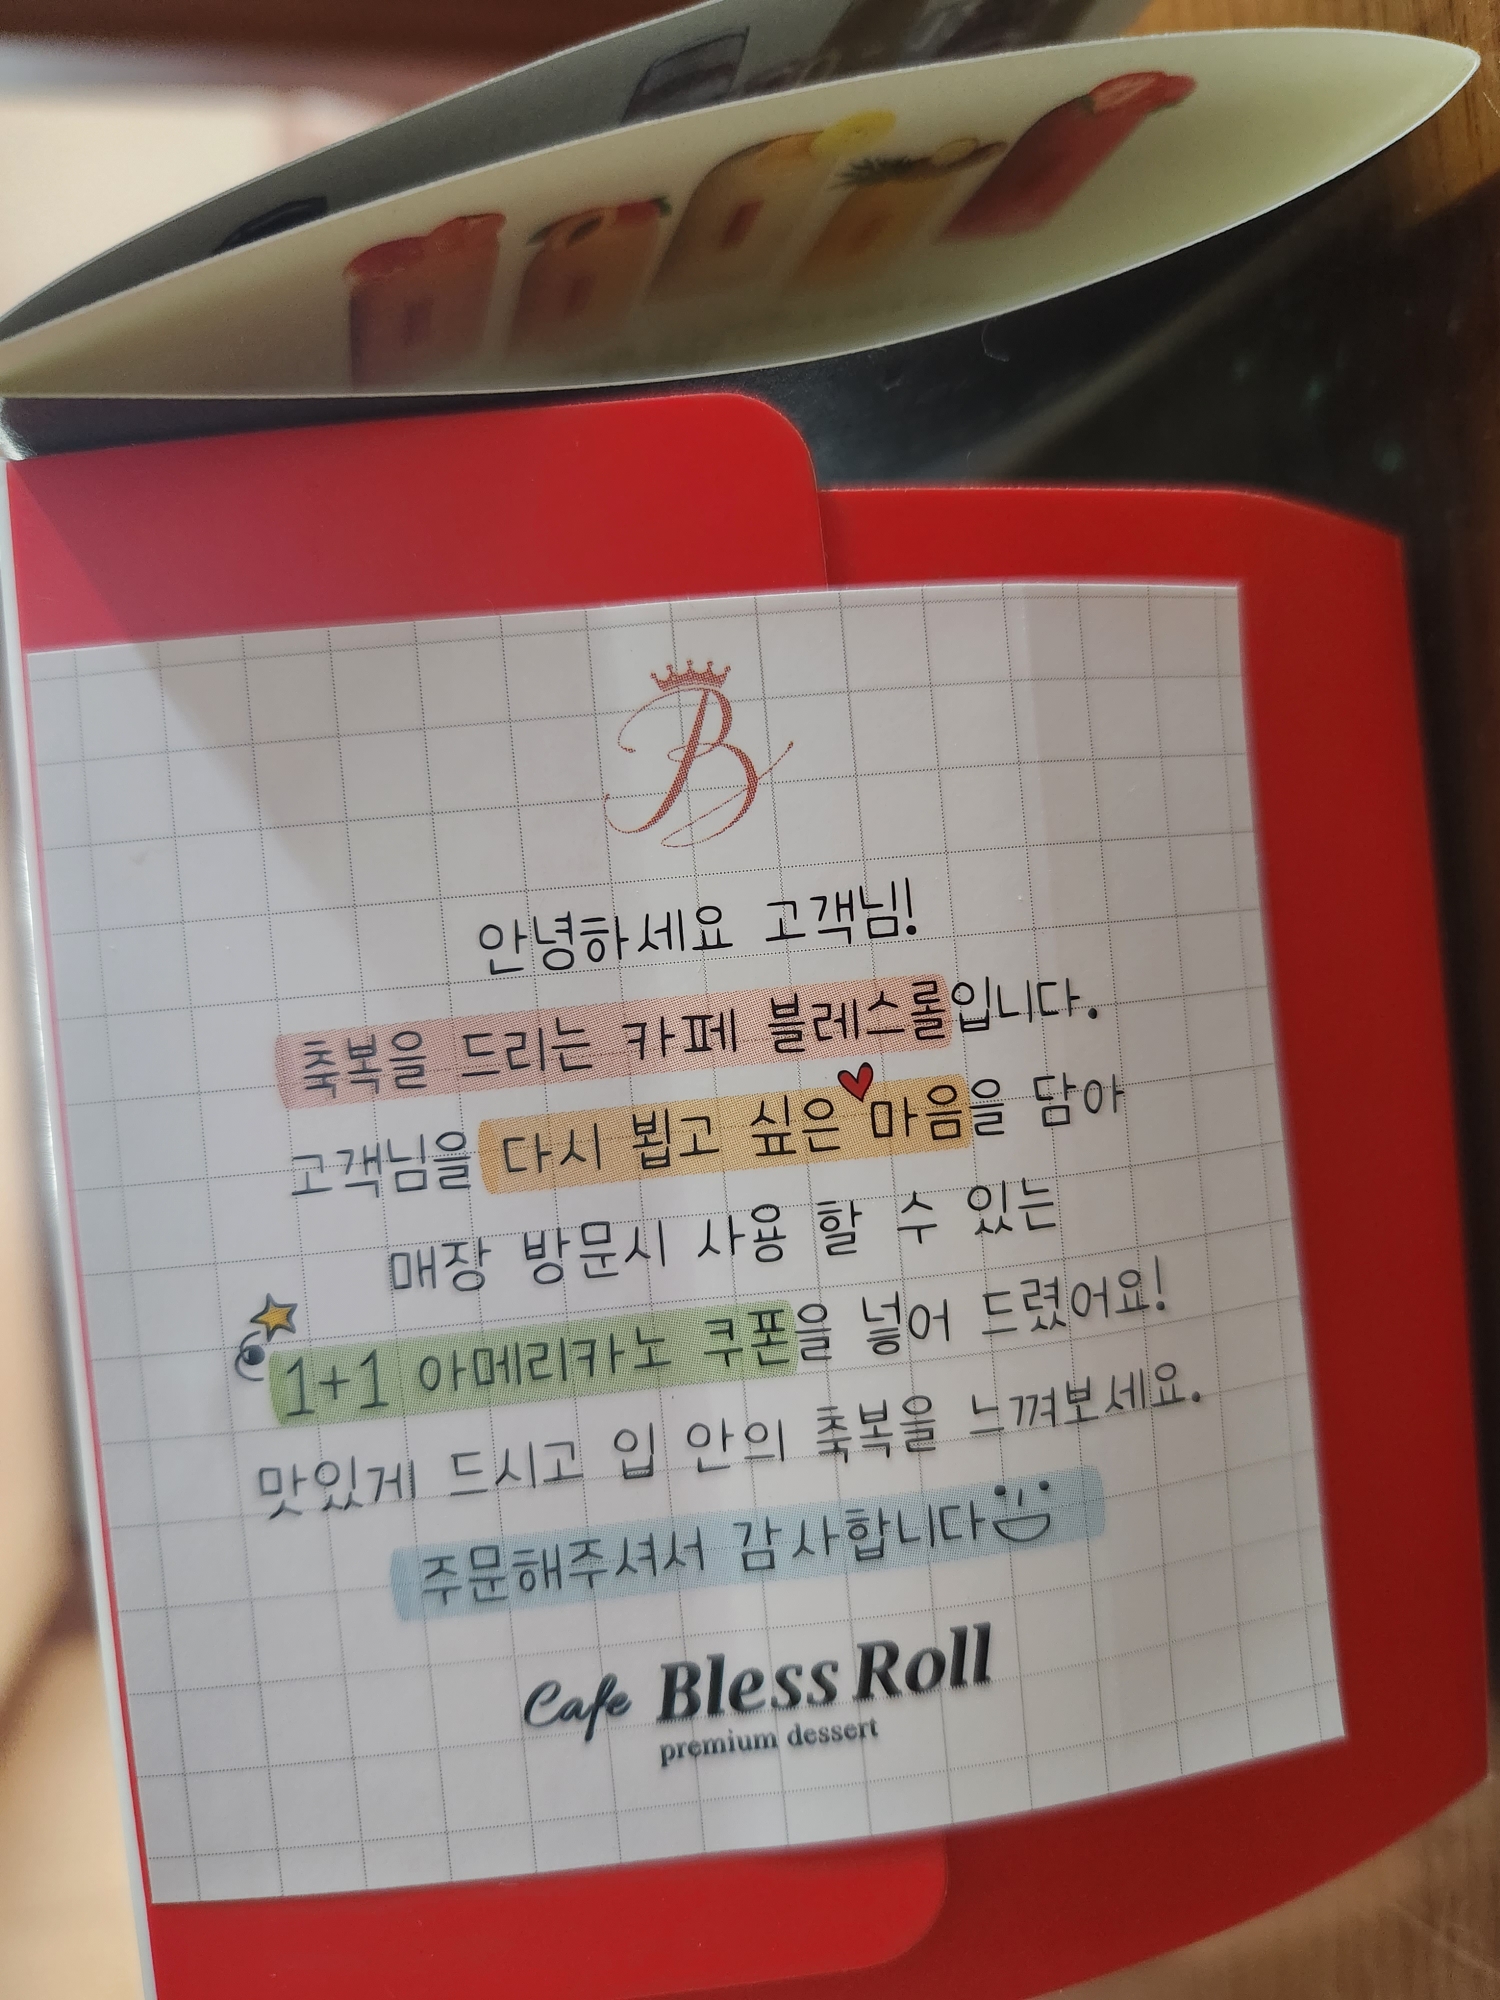 B
안녕하세요 고객님!
축복을 드리는 카페 블레스롤입니다.
고객님을 다시 뵙고 싶은 마음을 담아
매장 방문시 사용 할 수 있는
1+1 아메리카노 쿠폰을 넣어 드렸어요!
맛있게 드시고 입 안의 축복을 느껴보세요.
주문해주셔서 감사합니다
Cafe Bless Roll
premium dessert